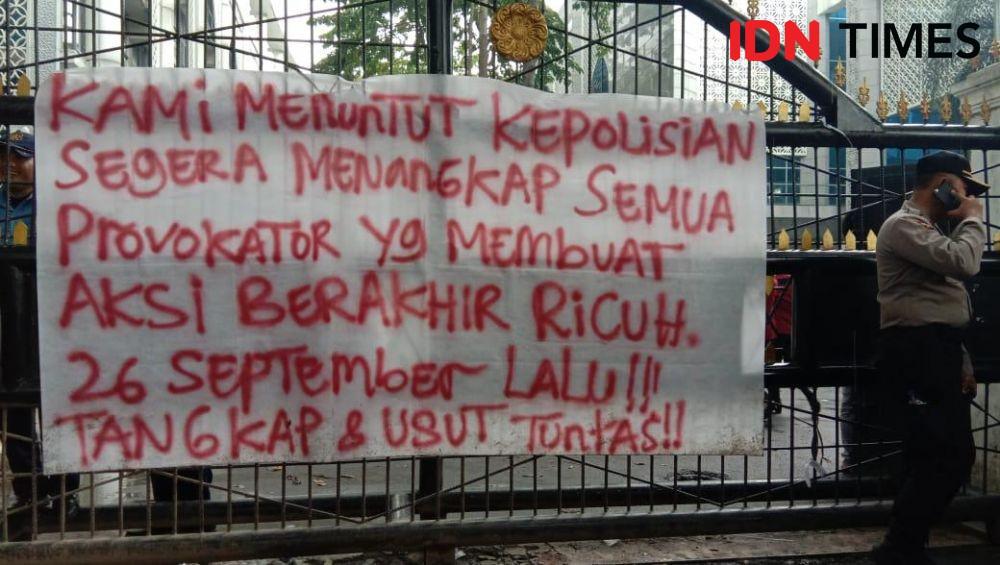 IDN TIMES
KAMI MENUNTUT KEPOLISIAN
SEGERA MENANGKAP SEMUA
PROVOKATOR Yg MEMBUAT
AKSI BERAKHIR RICUH.
26 SEPTEMBER LALU!!!
TANGKAP & USUT TUNTAS!!